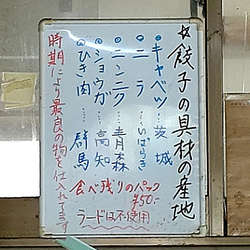 ☆餃子の具材の産地
・キャベツ…茨城
・ニラ…いばらき
・ニンニク…青森
・ショウガ…高知
・ひき肉…群馬
時期により最良の物を仕入れてます
食べ残りのパック
¥50-
ラードは不使用